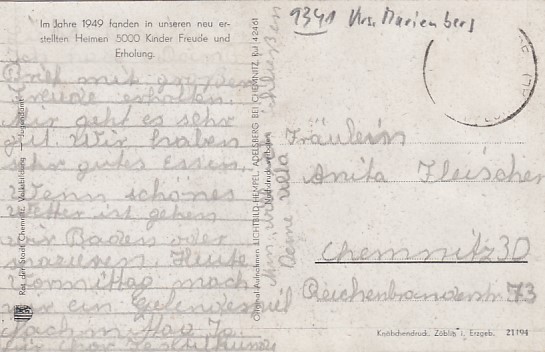 Im Jahre 1949 fanden in unseren neu er-
stellten Heimen 5000 Kinder Freude und
Erholung.
Brief mit großer
Freude erhalten.
Mir geht es sehr
gut. Wir haben
sehr gutes Essen.
Wenn schönes
Wetter ist gehen
wir Baden oder
spazieren. Heute
Vormittag mach
wir ein
Nachmittag
Rat der Stadt Chemnitz, Volksbildung
Original-Aufnahmen LICHTBILD-HEMPEL, ADELSBERG BEI CHEMNITZ, Ruf 42461
Nun will ich schließen
Deine
9341 Krs. Marienberg
Fräulein
Anita Fleischer
Chemnitz 30
Reichenbranderstr. 73
Knäbchendruck, Zöblitz i. Erzgeb. 21194